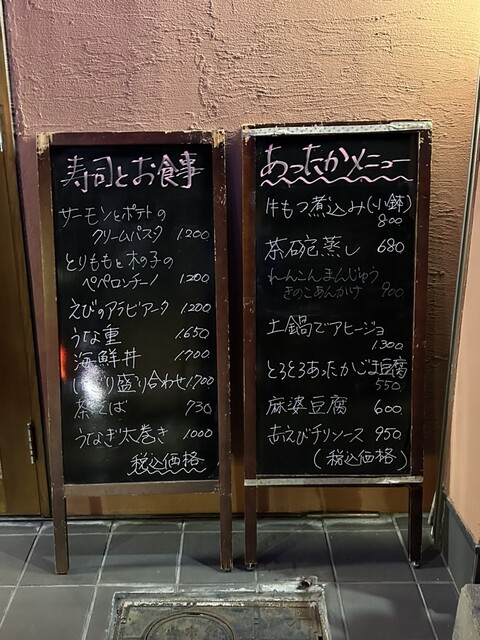 寿司とお食事
サーモンとポテトの
クリームパスタ 1.200
とりももと木の子の
ペペロンチーノ 1.200
えびのアラビアータ 1.200
うな重 1.650
海鮮丼 1.700
にぎり盛り合わせ 1.700
茶そば 730
うなぎ太巻き 1000
税込価格
あったかメニュー
牛もつ煮込み(小鉢)
800
茶碗蒸し 680
れんこんまんじゅう
きのこあんかけ 900
土鍋でアヒージョ
1300
とろとろあったかごま豆腐
550
麻婆豆腐 600
赤えびチリソース 950
(税込価格)